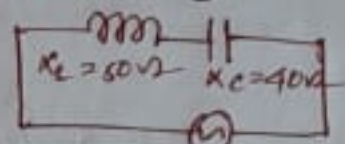 X_L = 50Ω X_C = 40Ω